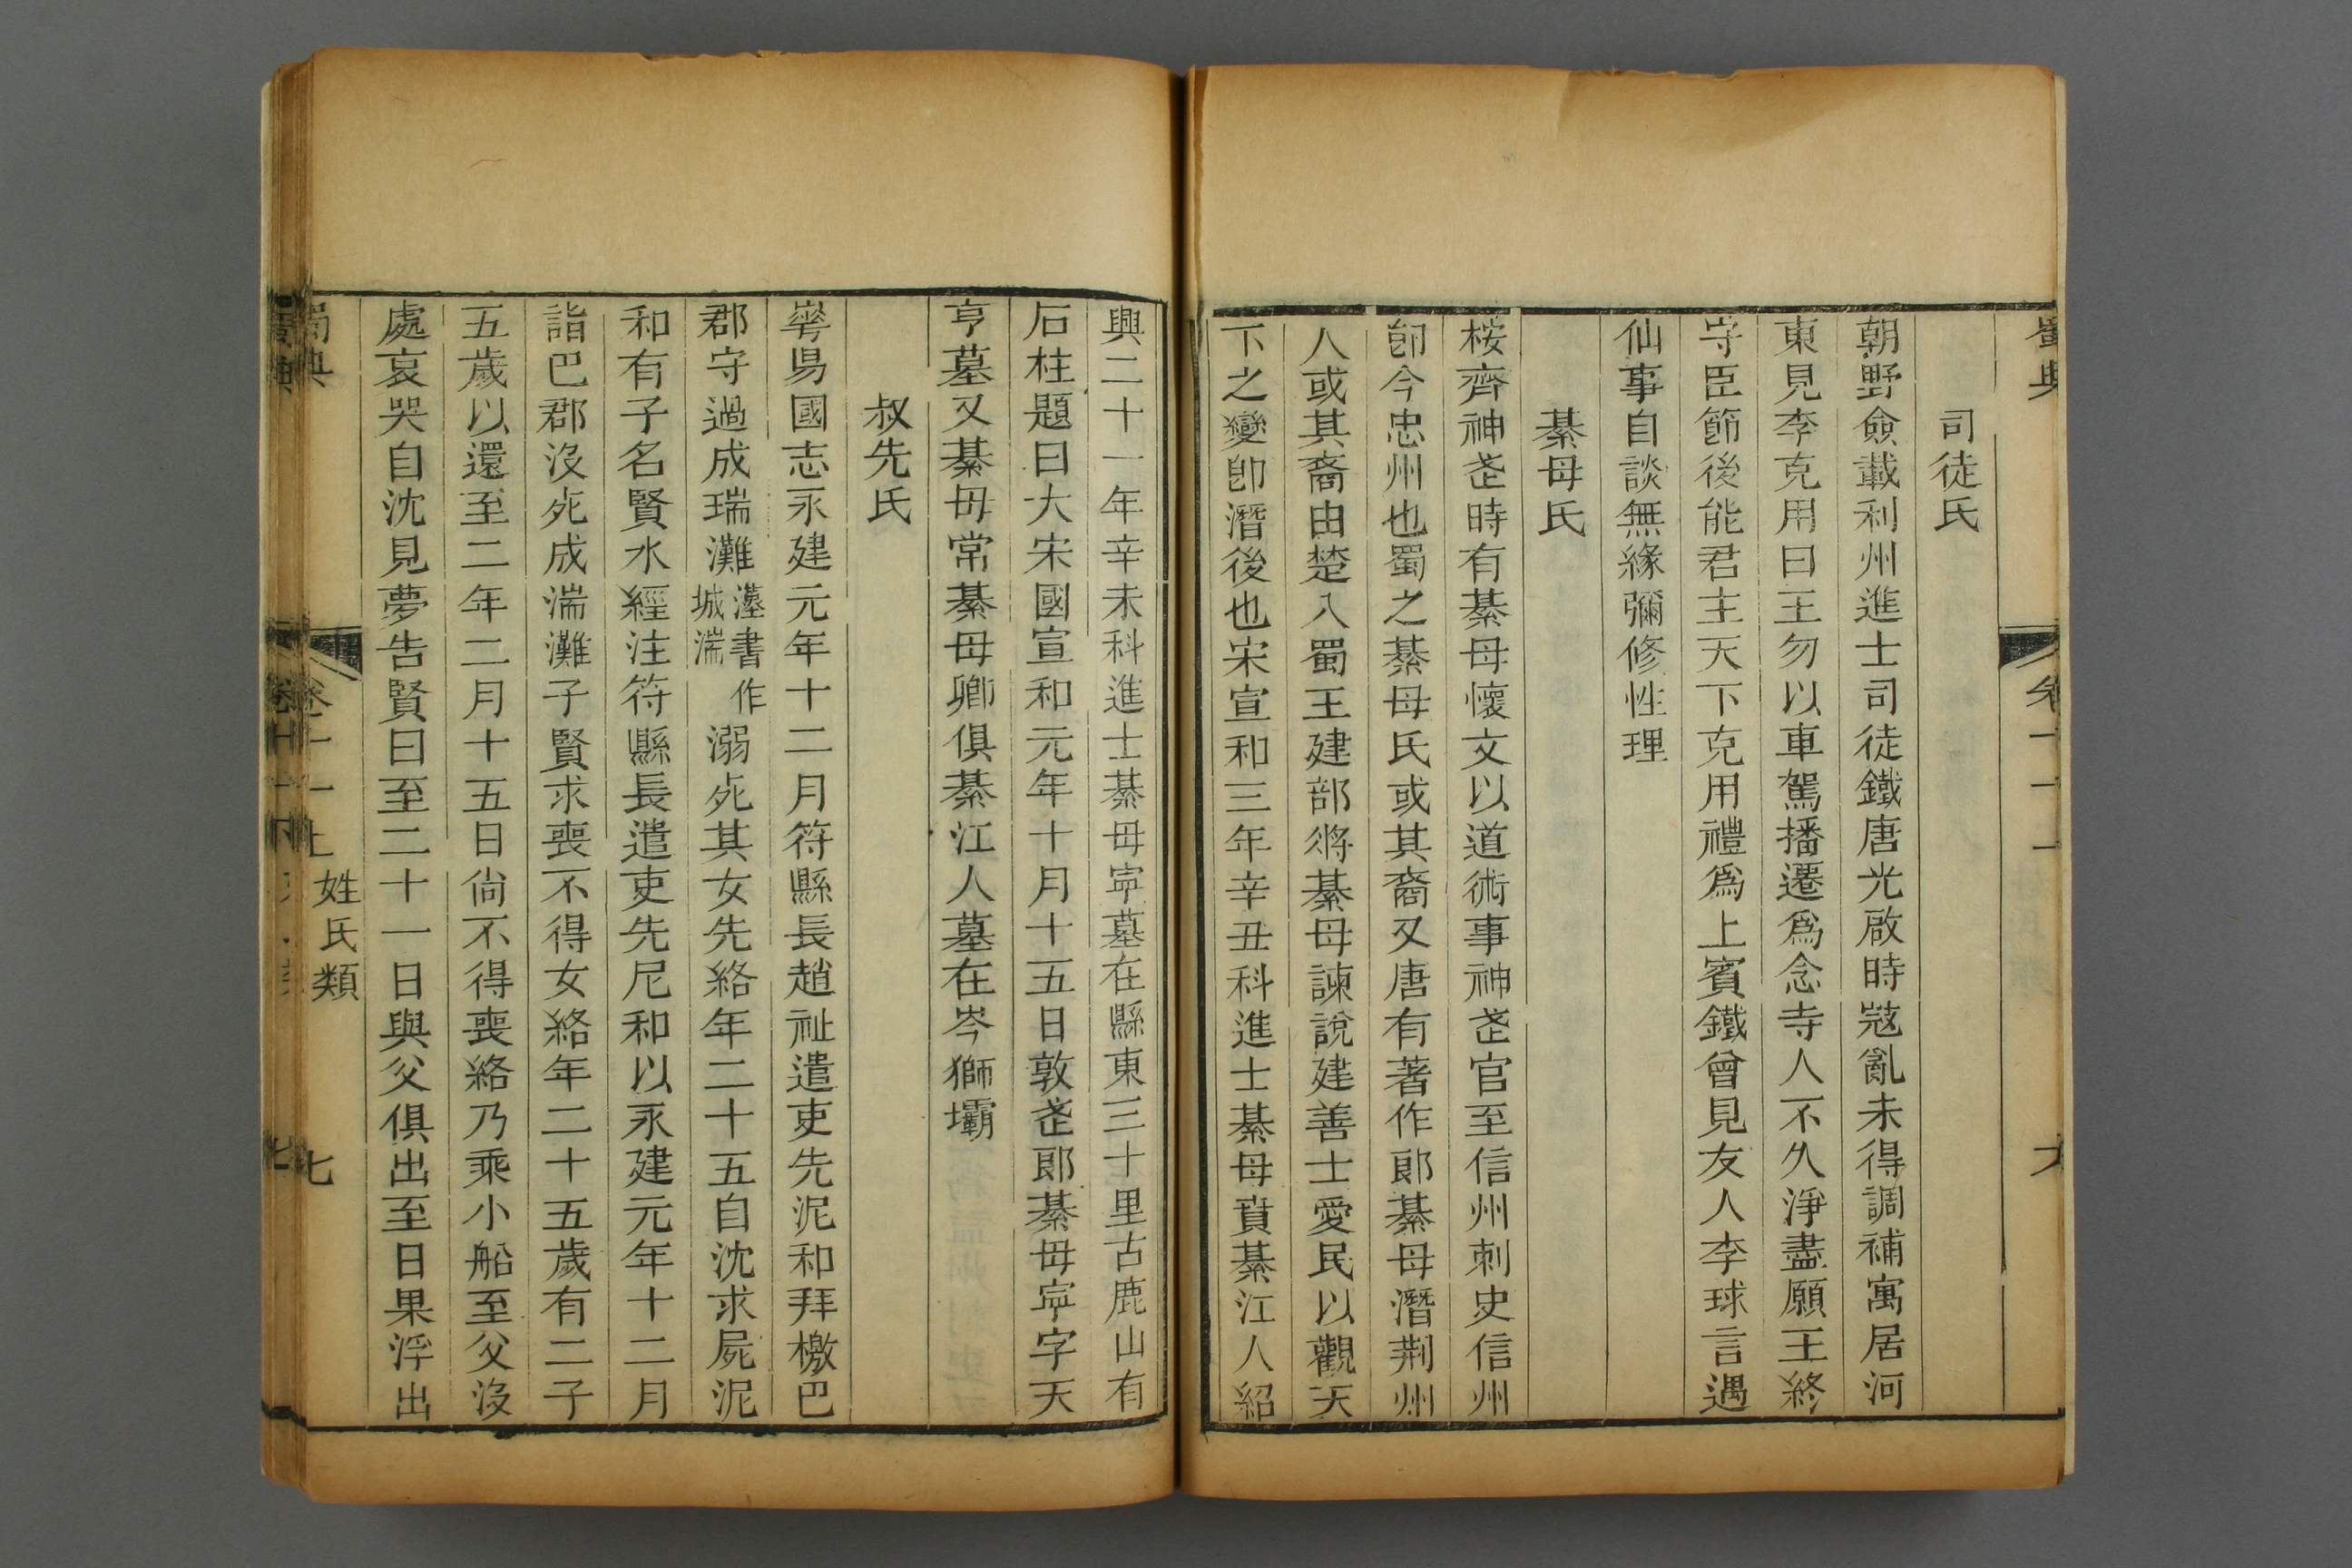 司徒氏
朝野僉載利州進士司徒鐵唐光啟時寇亂未得調補寓居河
東見李克用曰王勿以車駕播遷爲念寺人不久淨盡願王終
守臣節後能君主天下克用禮爲上賓鐵曾見友人李球言遇
仙事自談無緣彌修性理
綦母氏
桉齊神武時有綦母懷文以道術事神武官至信州刺史信州
卽今忠州也蜀之綦母氏或其裔又唐有著作郎綦母潛荆州
人或其裔由楚入蜀王建部將綦母諫說建善士愛民以觀天
下之變卽潛後也宋宣和三年辛丑科進士綦母賁綦江人紹
興二十一年辛未科進士綦毋寍墓在縣東三十里古鹿山有
石柱題曰大宋國宣和元年十月十五日敦武郎綦毋寍字天
亨墓又綦毋常綦母卿俱綦江人墓在岑獅壩
叔先氏
華昜國志永建元年十二月符縣長趙祉遣吏先泥和拜檄巴
郡守過成瑞灘漢書作城湍溺死其女先絡年二十五自沈求屍泥
和有子名賢水經注符縣長遣吏先尼和以永建元年十二月
詣巴郡沒死成湍灘子賢求喪不得女絡年二十五歲有二子
五歲以還至二年二月十五日尙不得喪絡乃乘小船至父沒
處哀哭自沈見夢告賢曰至二十一日與父俱出至日果浮出
蜀典 卷十一上 姓氏類 七